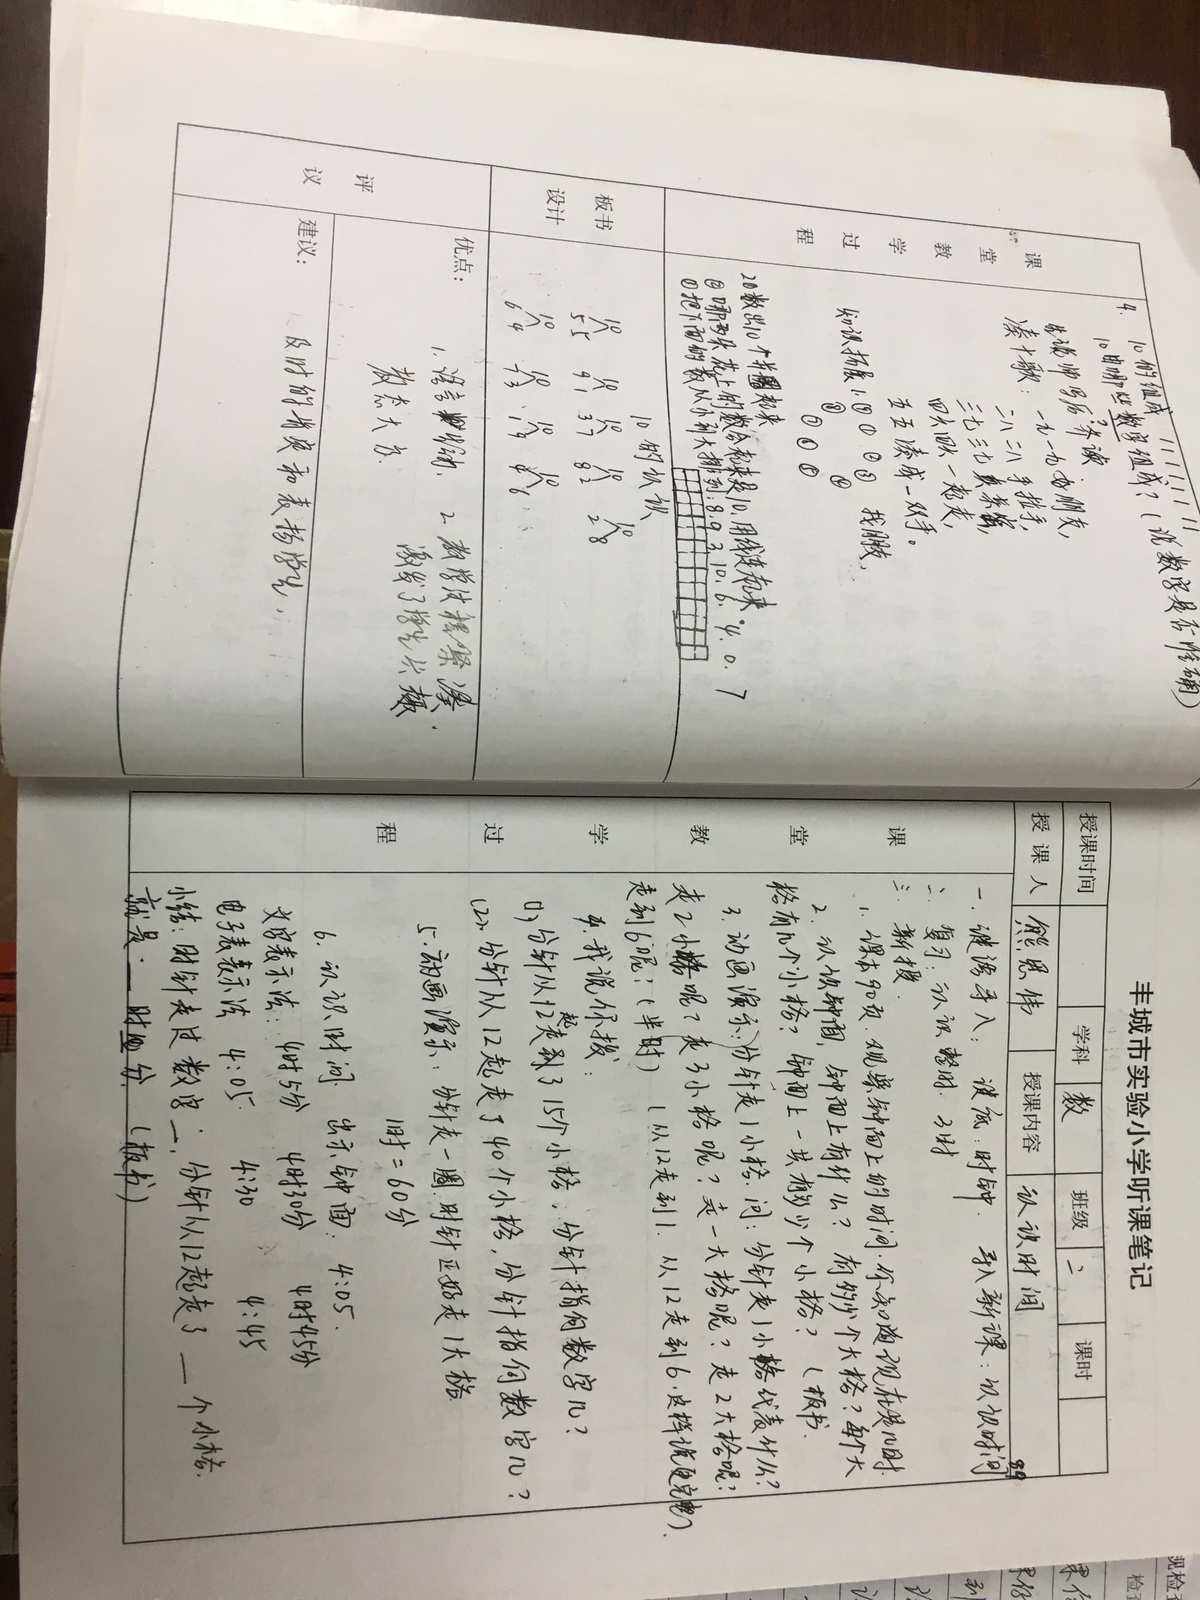 4. 10的组成
10由哪些数字组成?(说数字是否准确)
凑十歌: 一九一九好朋友,
二八二八手拉手,
三七三七真亲密,
四六四六一起走,
五五凑成一双手。
知识拓展 1.
找朋友,
20数出10个并圈起来
②哪两朵花上的数合起来是10,用线连起来.
①把下面的数从小到大排列:8.9.3.10.6.4.0.7
课堂教学过程
板书设计
10的认识
10 10 10 10 10
5 5 9 1 3 7 8 2 2 8
10 10 10 10
6 4
评议
优点:
1. 语言
教态大方.
2. 教学
激发了学生兴趣
建议:
及时的
和表扬学生.
丰城市实验小学听课笔记
授课时间 学科 数 班级 二 课时
授课人 熊恩伟 授课内容 认识时间
课堂教学过程
一. 谜语导入: 谜底:时钟. 导入新课:认识时间
89
二. 复习:认识整时. 3时
三. 新授.
1. 课本90页.观察钟面上的时间.你知道现在是几时.
2. 认识钟面,钟面上有什么? 有多少个大格?每个大
格有几个小格? 钟面上一共有多少个小格? (板书.
3. 动画演示:分针走1小格.问:分针走1小格代表什么?
走2小格呢?走3小格呢?走一大格呢?走2大格呢?
走到6呢?(半时) (从12走到1.从12走到6.这样说更完整).
4. 我说你拨:
(1), 分针从12起走到了15个小格,分针指向数字几?
(2). 分针从12起走了40个小格,分针指向数字几?
5. 动画演示:分针走一圈.时针正好走1大格
1时=60分
6. 认识时间 出示钟面: 4:05.
文字表示法: 4时5分 4时30分 4时45分
电子表表示法 4:05. 4:30 4:45
小结:时针走过数字一,分针从12起走了__个小格.
就是__时__分 (板书)